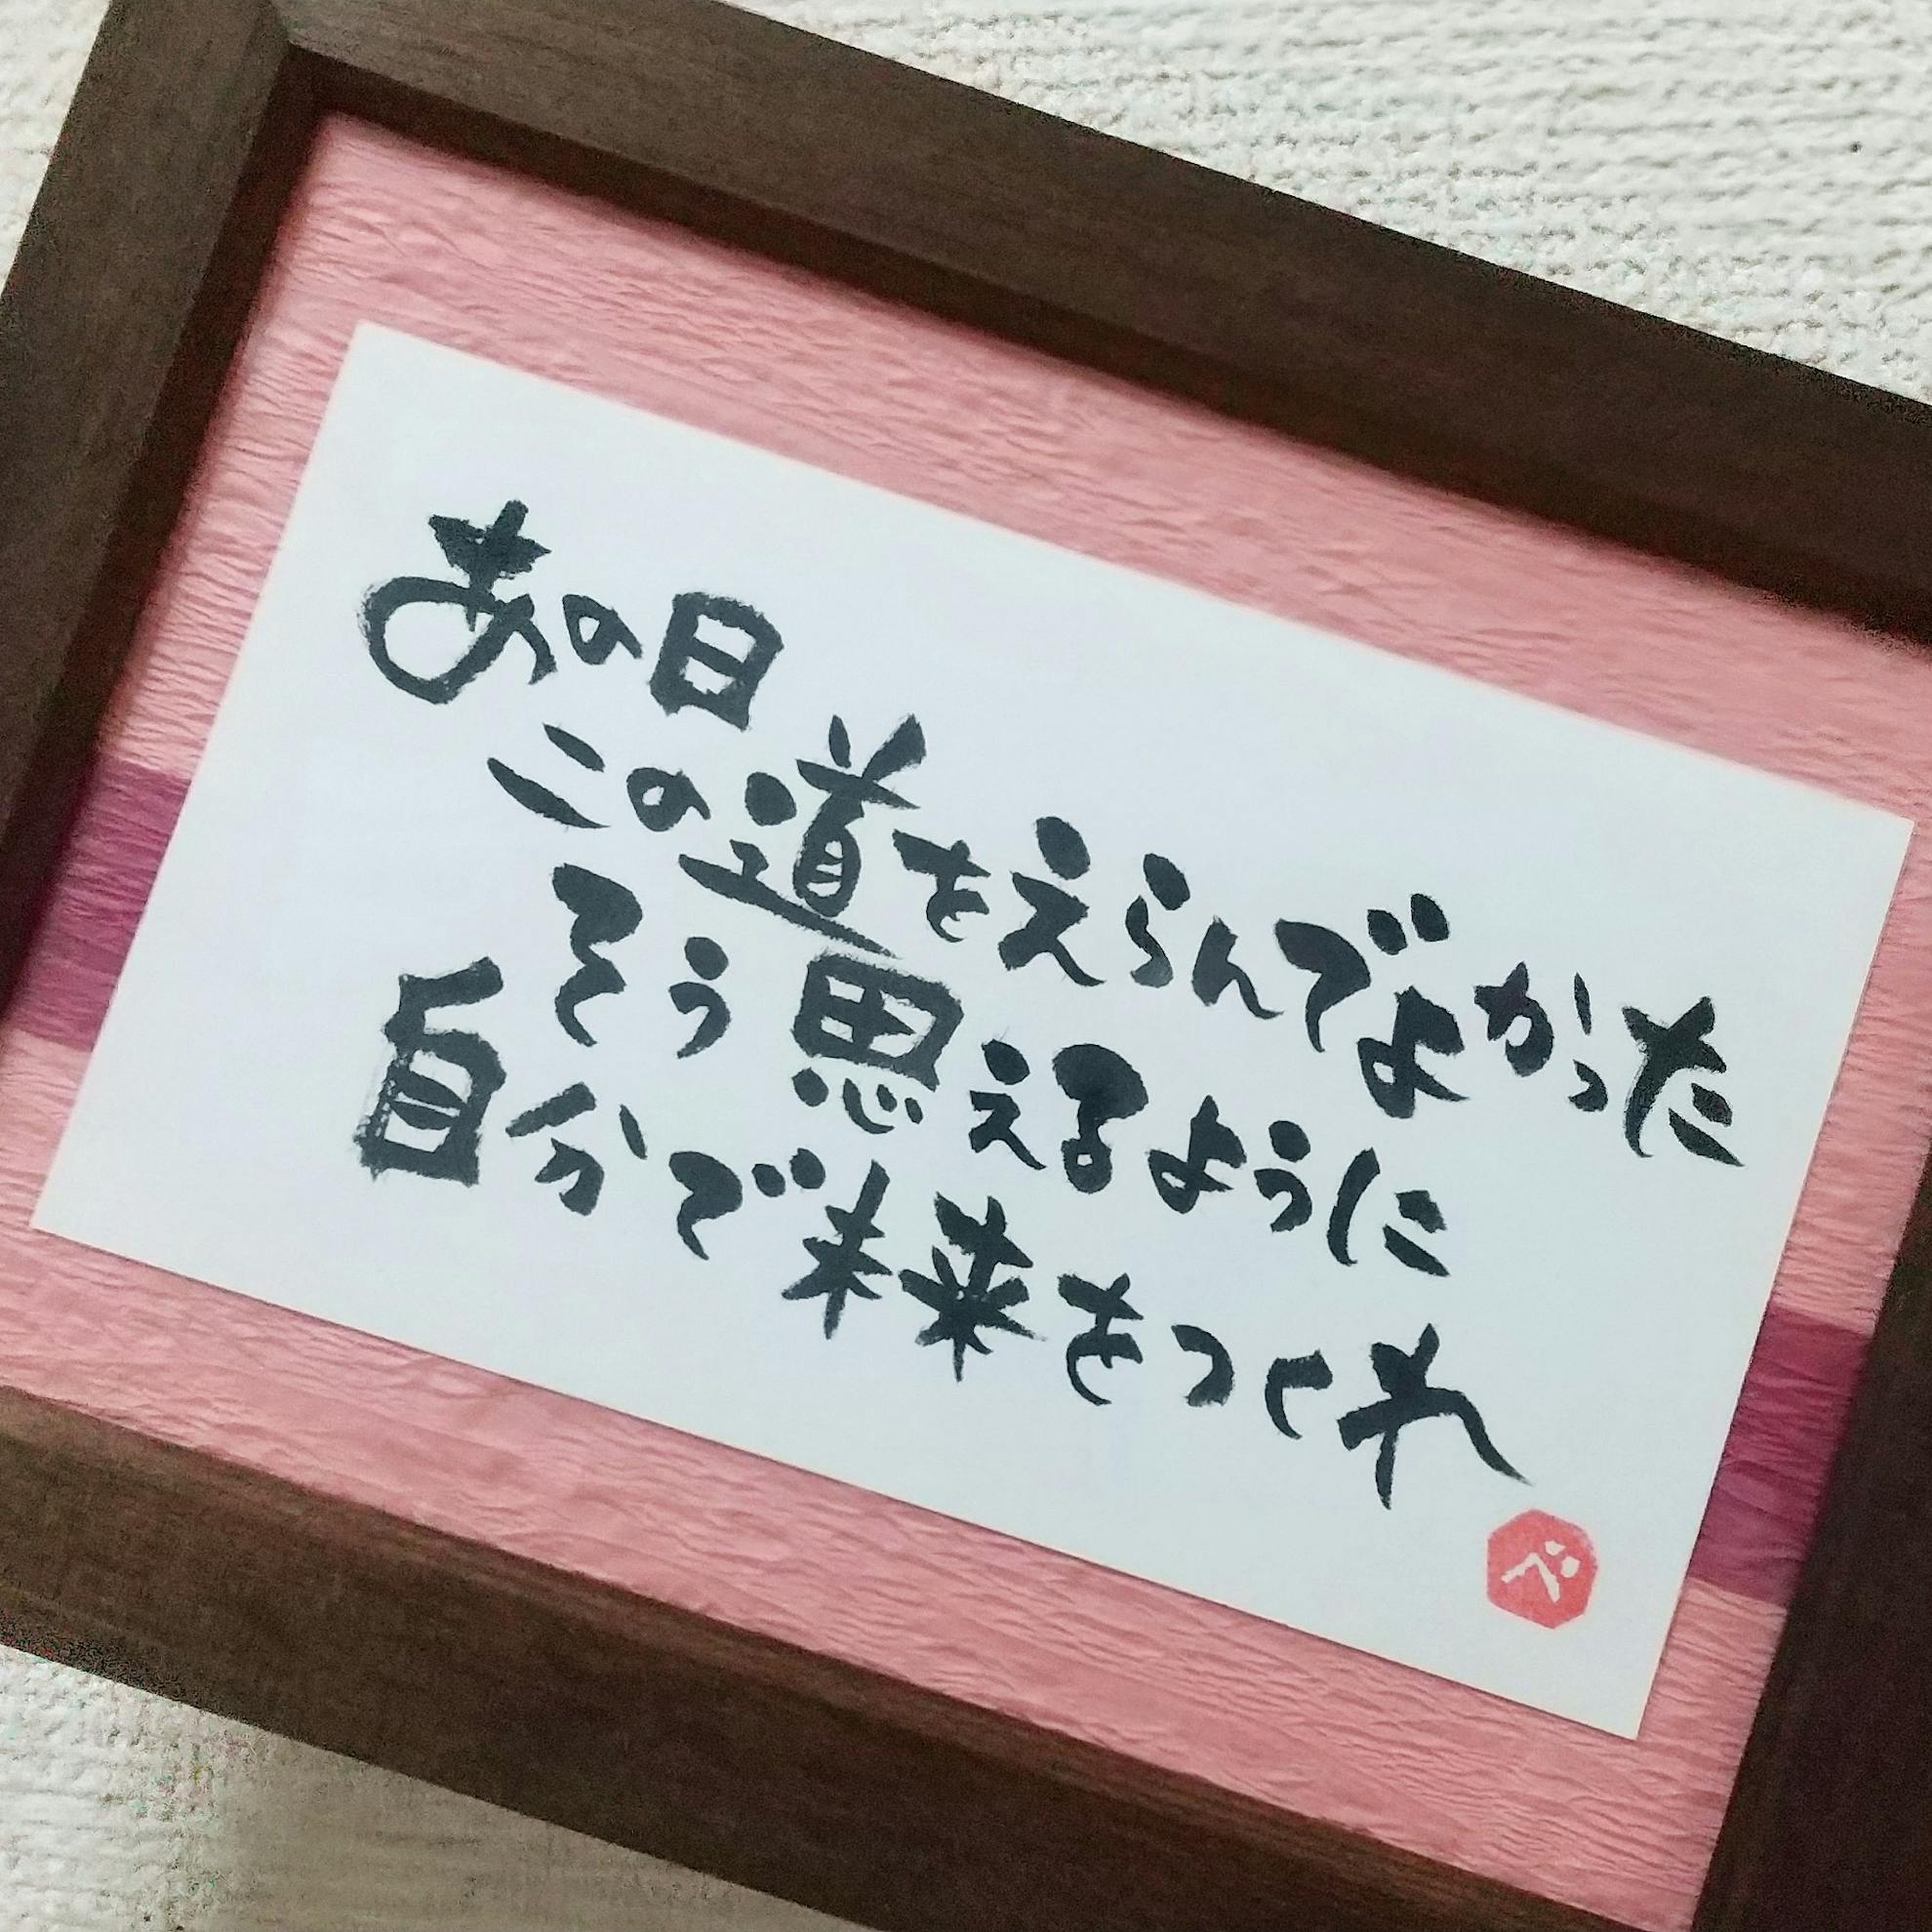 あの日
この道をえらんでよかった
そう思えるように
自分で未来をつくれ
べ